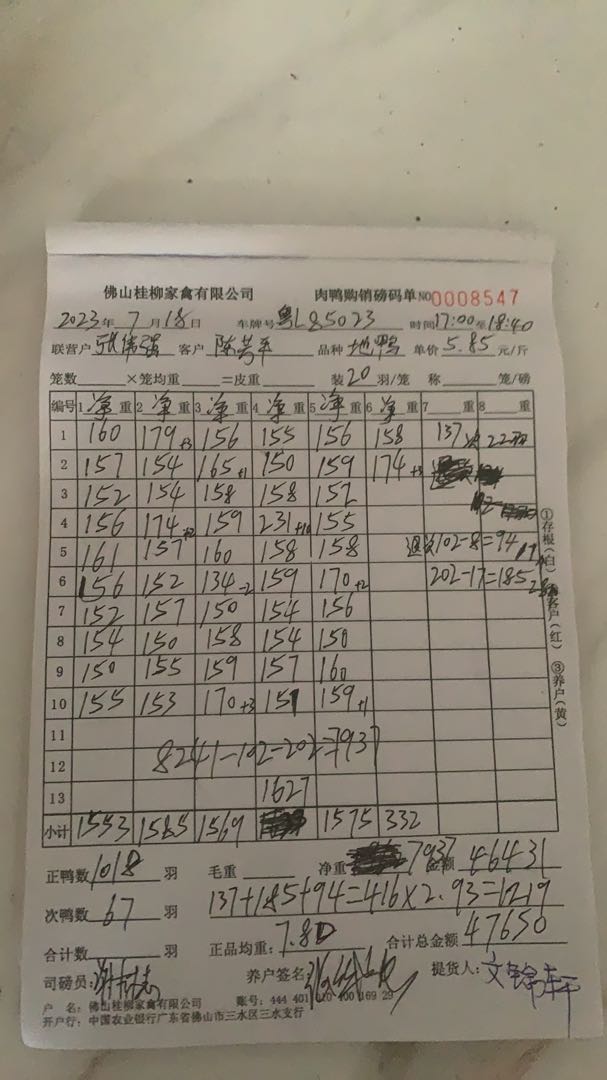 佛山桂柳家禽有限公司 肉鸭购销磅码单 NO 0008547
2023年 7月 18日 车牌号 粤L85023 时间 17:00至18:40
联营户 张伟强 客户 陈芳平 品种 地鸭 单价 5.85 元/斤
笼数 ×笼均重 =皮重 装 20 羽/笼 称 笼/磅
编号 1 净重 2 净重 3 净重 4 净重 5 净重 6 净重 7 重 8 重
1 160 179+3 156 155 156 158 137 22
2 157 154 165+1 150 159 174+3
3 152 154 158 158 152
4 156 174+2 159 231+10 155
5 161 157 160 158 158 102-8=94
6 156 152 134-2 159 170+2 202-17=185
7 152 157 150 154 156
8 154 150 158 154 150
9 150 155 159 157 160
10 155 153 170+3 151 159+1
11
12 8241-102-202=7937
13 1627
小计 1553 1585 1569 1575 332
①存根(白) 客户(红) ③养户(黄)
正鸭数 1018 羽 毛重 净重 7937 金额 46431
次鸭数 67 羽 137+185+94=416×2.93=1219
合计数 羽 正品均重: 7.80 合计总金额 47650
司磅员: 养户签名: 提货人:
户 名: 佛山桂柳家禽有限公司 账号: 444 401 100 169 29
开户行: 中国农业银行广东省佛山市三水区三水支行